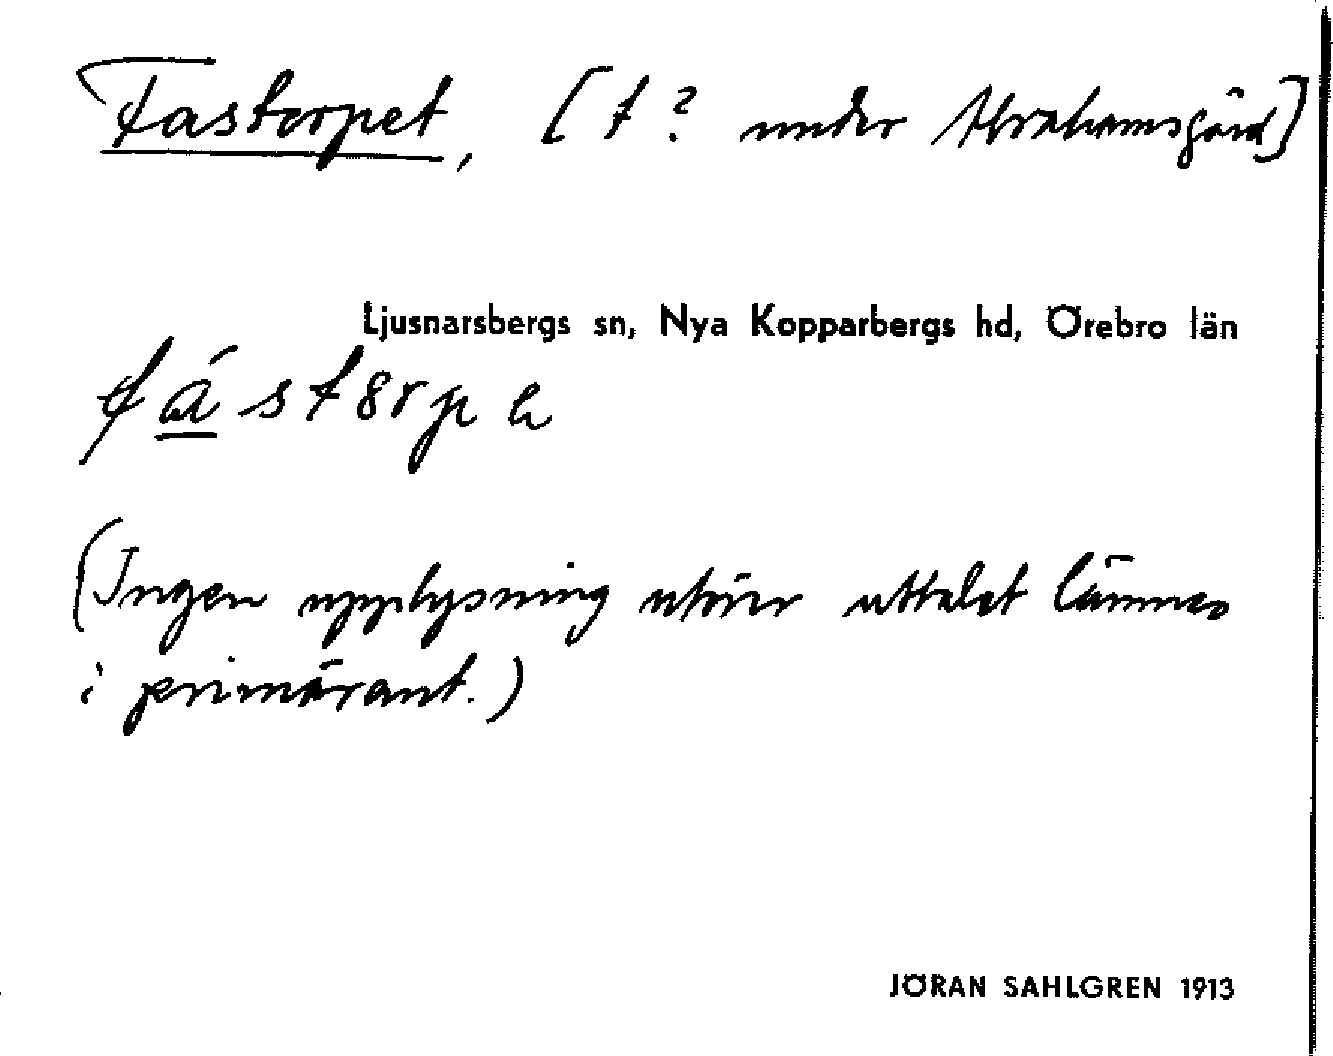 Fastorpet, [t ? under Abrahamsgård]
Ljusnarsbergs sn, Nya Kopparbergs hd, Örebro län
fástȣrpe
(Ingen upplysning utöver uttalet lämnas
i primärant.)
JÖRAN SAHLGREN 1913